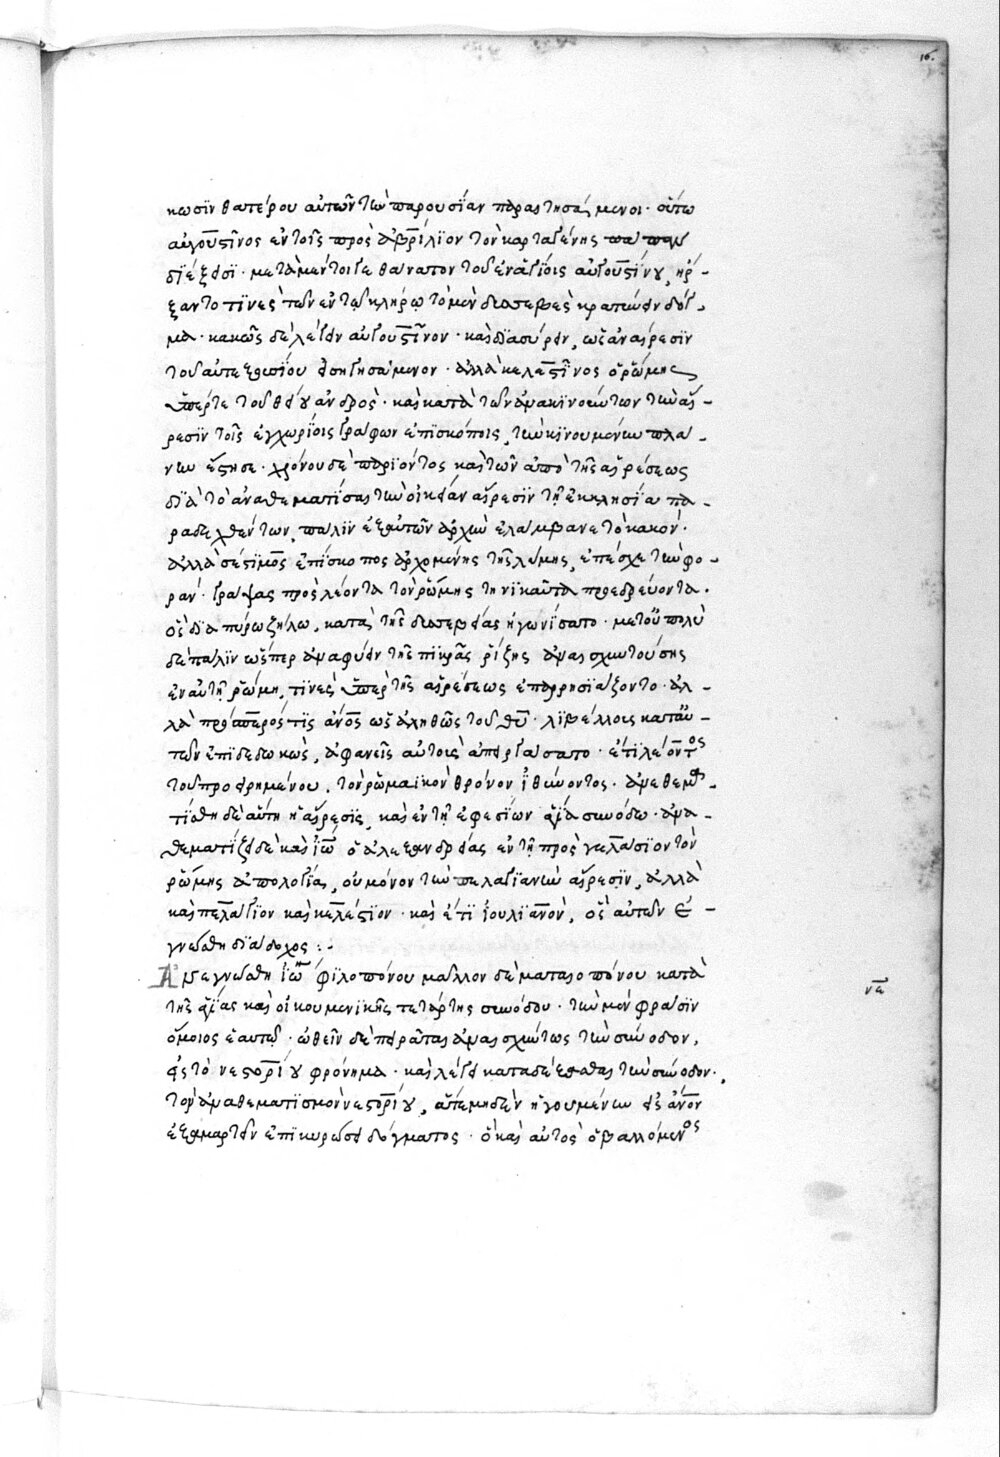 16.
κωσϊν θατέρου αὐτῶν τὴν παρουσίαν παραστησάμενοι· οὕτω
αὐγουστῖνος ἐν τοῖς πρὸς ἀβρίλιον τὸν καρταγένης πάπαν
διέξεισι· μετὰ μέντοι γε θάνατον τοῦ ἐν ἁγίοις αὐγουστίνου, ἤρ-
ξαντο τινὲς τῶν ἐν τῷ κλήρῳ τὸ μὲν δυσσεβὲς κρατύνειν δόγ-
μα· κακῶς δὲ λέγειν αὐγουστῖνον· καὶ διασύρειν, ὡς ἀναίρεσιν
τοῦ αὐτεξουσίου εἰσηγησάμενον· ἀλλὰ κελεστῖνος ὁ ῥώμης
ὑπέρ τε τοῦ θείου ἀνδρὸς· καὶ κατὰ τῶν ἀνακινούντων τὴν αἵ-
ρεσιν τοῖς ἐγχωρίοις γράφων ἐπισκόποις, τὴν κινουμένην πλά-
νην ἔστησε· χρόνου δὲ παριόντος καὶ τῶν ἀπὸ τῆς αἱρέσεως
διὰ τὸ ἀναθεματίσαι τὴν οἰκείαν αἵρεσιν τῇ ἐκκλησία πα-
ραδεχθέντων, πάλιν ἐξ αὐτῶν ἀρχὴν ἐλάμβανε τὸ κακόν·
ἀλλὰ σέπτιμος ἐπίσκοπος ἀρχομένης τῆς λύμης, ἐπέσχε τὴν φο-
ράν· γράψας πρὸς λέοντα τὸν ῥώμης τηνικαῦτα προεδρεύοντα·
ὃς διαπύρω ζήλω, κατὰ τῆς δυσσεβείας ἠγωνίσατο· μετ' οὐ πολὺ
δὲ πάλιν ὥσπερ ἀναφύειν τῆς πικρᾶς ῥίζης ἀναισχυντούσης
ἐν αὐτῇ ῥώμῃ, τινὲς ὑπὲρ τῆς αἱρέσεως ἐπαρρησιάζοντο· ἀλ-
λὰ πρόσπερός τις ἄνος ὡς ἀληθῶς τοῦ θυ· λιβέλλοις κατ' αὐ-
τῶν ἐπιδεδωκὼς, ἀφανεῖς αὐτοὺς ἀπειργάσατο· ἔτι λέοντος
τοῦ προειρημένου, τὸν ῥωμαϊκὸν θρόνον ἰθύνοντος· ἀνεθεμα-
τίσθη δὲ αὕτη ἡ αἵρεσις, καὶ ἐν τῇ ἐφεσίων ἁγία συνόδω· ἀνα-
θεματίζει δὲ καὶ ἰω ὁ ἀλεξανδρείας ἐν τῇ πρὸς γελάσιον τὸν
ῥώμης ἀπολογία, οὐ μόνον τὴν πελαγιανὴν αἵρεσιν, ἀλλὰ
καὶ πελάγιον καὶ κελέστιον· καὶ ἔτι ἰουλιανὸν, ὃς αὐτῶν ἐ-
γνώσθη διάδοχος :·
Ἀνεγνώσθη ἰω φιλοπόνου μᾶλλον δὲ ματαιοπόνου κατὰ
τῆς ἁγίας καὶ οἰκουμενικῆς τετάρτης συνόδου· τὴν μὲν φράσιν
ὅμοιος ἑαυτῷ· ὠθεῖν δὲ πειρᾶται ἀναισχύντως τὴν σύνοδον,
εἰς τὸ νεστορίου φρόνημα· καὶ λέγει καταδέξασθαι τὴν σύνοδον,
τὸν ἀναθεματισμὸν νεστορίου, ἅτε μηδὲν ἡγουμένων εἰς ἄνον
ἐξαμαρτεῖν ἐπικυρώσει δόγματος· ὃ καὶ αὐτὸς ὁ βαλλόμενος
νε